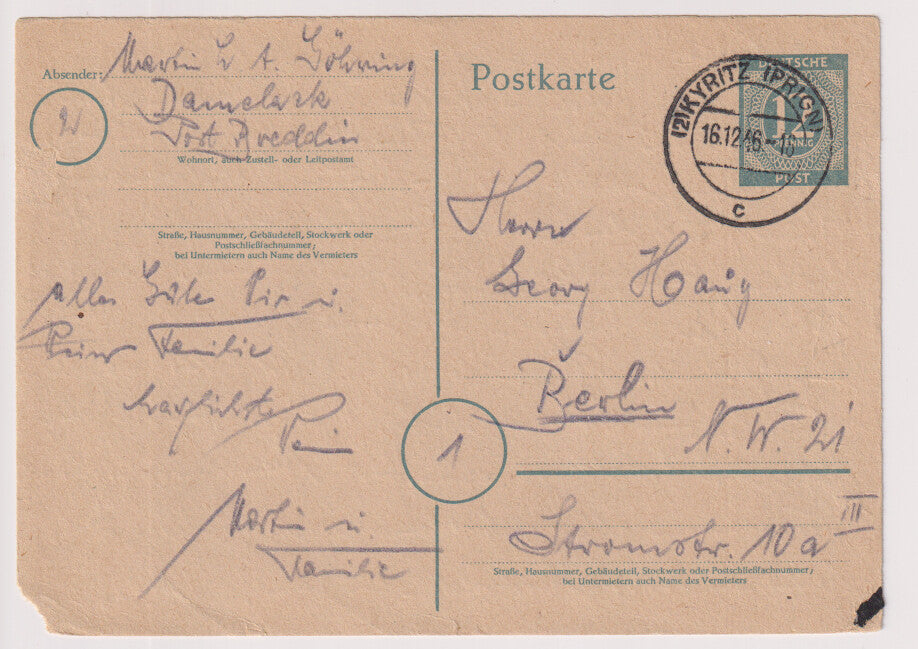 Absender: Martin u. A. Göhring
Damelack
Post Breddin
Wohnort, auch Zustell- oder Leitpostamt
Straße, Hausnummer, Gebäudeteil, Stockwerk oder
Postschließfachnummer;
bei Untermietern auch Name des Vermieters
alles Gute Dir u.
Deiner Familie
Dein
Martin u.
Familie
Postkarte
DEUTSCHE
12
PFENNIG
POST
(2) KYRITZ (PRIGN)
16.12.46
c
Herrn
Georg Haug
Berlin
N.W. 21
1
Stromstr. 10a III
Straße, Hausnummer, Gebäudeteil, Stockwerk oder Postschließfachnummer;
bei Untermietern auch Name des Vermieters